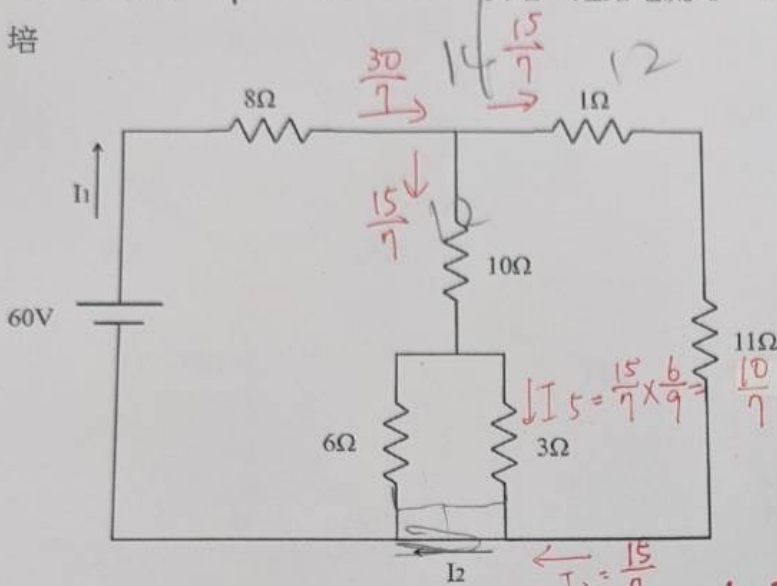 培
30/7
14
15/7
12
8Ω
1Ω
I1
15/7
12
10Ω
60V
11Ω
I5 = 15/7 × 6/9 = 10/7
6Ω
3Ω
I2
= 15/7